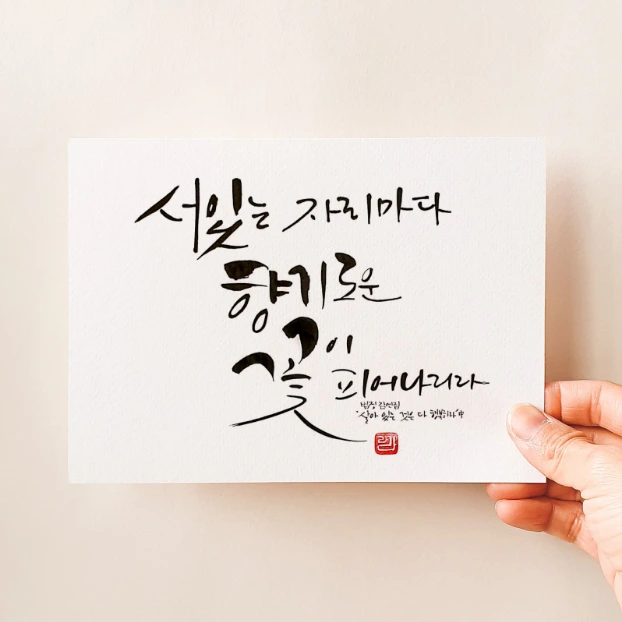 서있는 자리마다
향기로운
꽃이
피어나리라
법정 잠언집
'살아 있는 것은 다 행복하라' 中